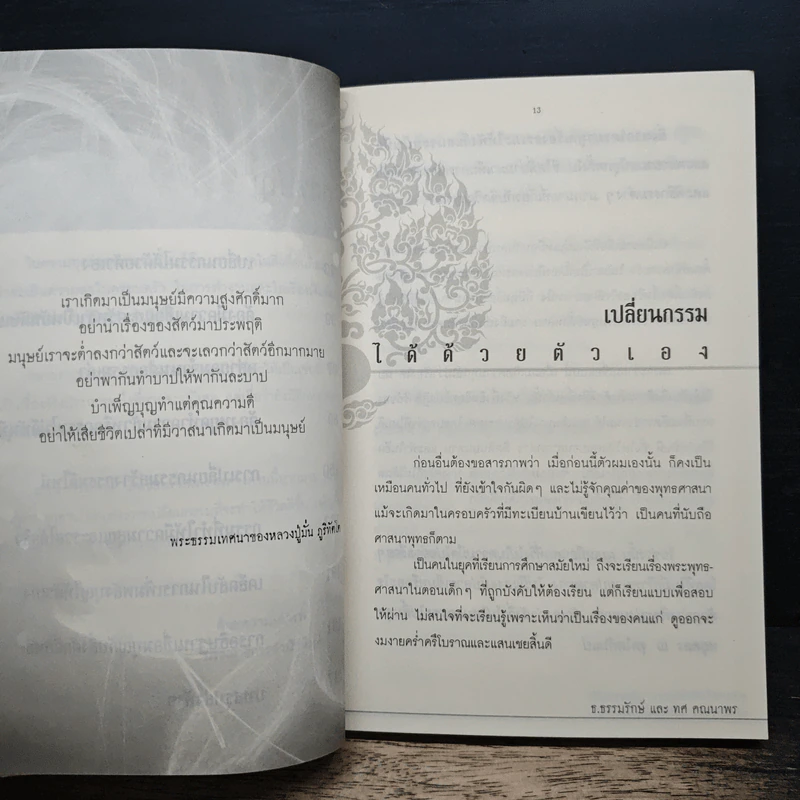 เราเกิดมาเป็นมนุษย์มีความสูงศักดิ์มาก
อย่านำเรื่องของสัตว์มาประพฤติ
มนุษย์เราจะต่ำลงกว่าสัตว์และจะเลวกว่าสัตว์อีกมากมาย
อย่าพากันทำบาปให้พากันละบาป
บำเพ็ญบุญทำแต่คุณความดี
อย่าให้เสียชีวิตเปล่าที่มีวาสนาเกิดมาเป็นมนุษย์
พระธรรมเทศนาของหลวงปู่มั่น
13
เปลี่ยนกรรม
ได้ด้วยตัวเอง
ก่อนอื่นต้องขอสารภาพว่า เมื่อก่อนนี้ตัวผมเองนั้น ก็คงเป็น
เหมือนคนทั่วไป ที่ยังเข้าใจกันผิดๆ และไม่รู้จักคุณค่าของพุทธศาสนา
แม้จะเกิดมาในครอบครัวที่มีทะเบียนบ้านเขียนไว้ว่า เป็นคนที่นับถือ
ศาสนาพุทธก็ตาม
เป็นคนในยุคที่เรียนการศึกษาสมัยใหม่ ถึงจะเรียนเรื่องพระพุทธ-
ศาสนาในตอนเด็กๆ ที่ถูกบังคับให้ต้องเรียน แต่ก็เรียนแบบเพื่อสอบ
ให้ผ่าน ไม่สนใจที่จะเรียนรู้เพราะเห็นว่าเป็นเรื่องของคนแก่ ดูออกจะ
งมงายคร่ำครึโบราณและแสนเชยสิ้นดี
ช.ธรรมรักษ์ และ ทศ คณนาพร